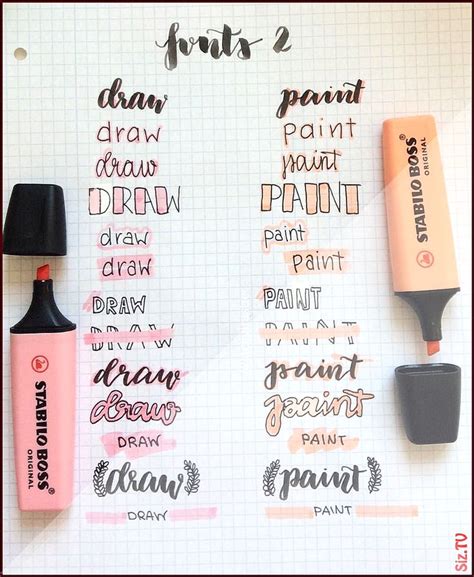 fonts 2
draw paint
draw paint
draw paint
DRAW PAINT
draw paint
draw paint
DRAW PAINT
DRAW PAINT
draw paint
draw paint
DRAW PAINT
draw paint
DRAW PAINT
STABILO BOSS
ORIGINAL
STABILO BOSS
ORIGINAL
Siz.TV